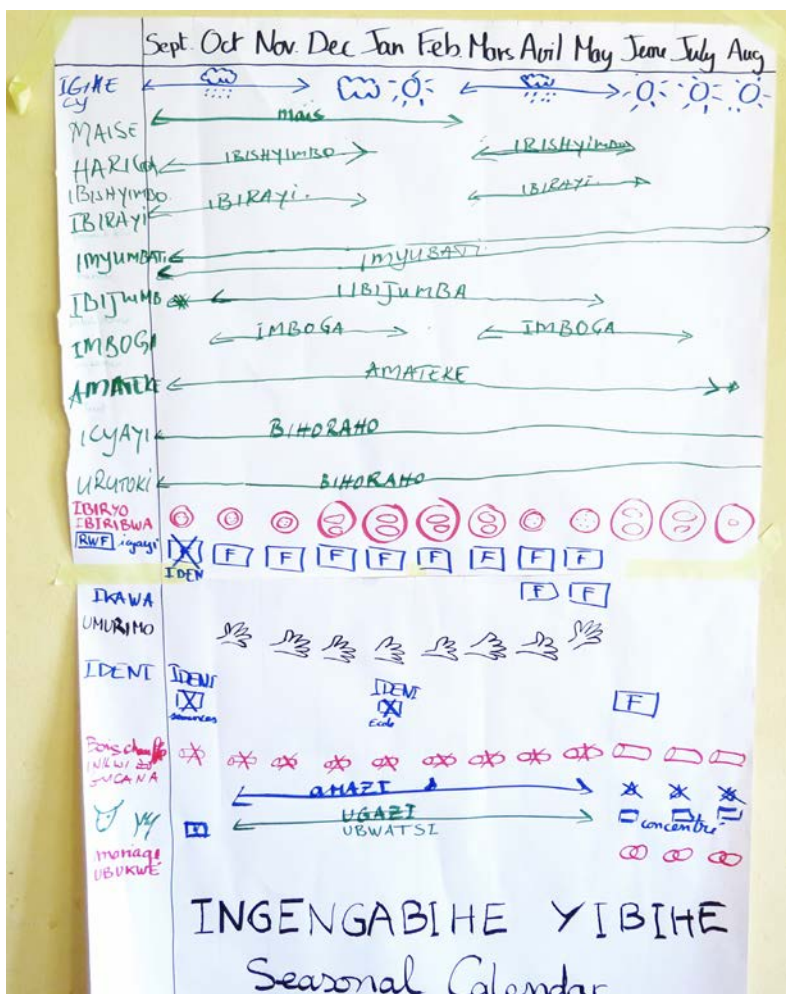 Sept. Oct Nov. Dec Jan Feb. Mars Avril May Jeune July Aug
IGIHE
CY
MAISE mais
HARICOT IBISHYIMBO IBISHYIMBO
IBISHYIMBO.
IBIRAYI IBIRAYI. IBIRAYI.
IMYUMBATI IMYUBATI
IBIJUMB IBIJUMBA
IMBOGA IMBOGA IMBOGA
AMATEKE AMATEKE
ICYAYI BIHORAHO
URUTOKI BIHORAHO
IBIRYO
IBIRIBWA
RWF icyayi F F F F F F F F
IDEN
IKAWA F F
UMURIMO
IDENI IDENI IDENI F
semences Ecole
Bois chauff
INKWI ZO
GUCANA
AMAZI
UGAZI
UBWATSI concentré
mariage
UBUKWE
INGENGABIHE YIBIHE
Seasonal Calendar